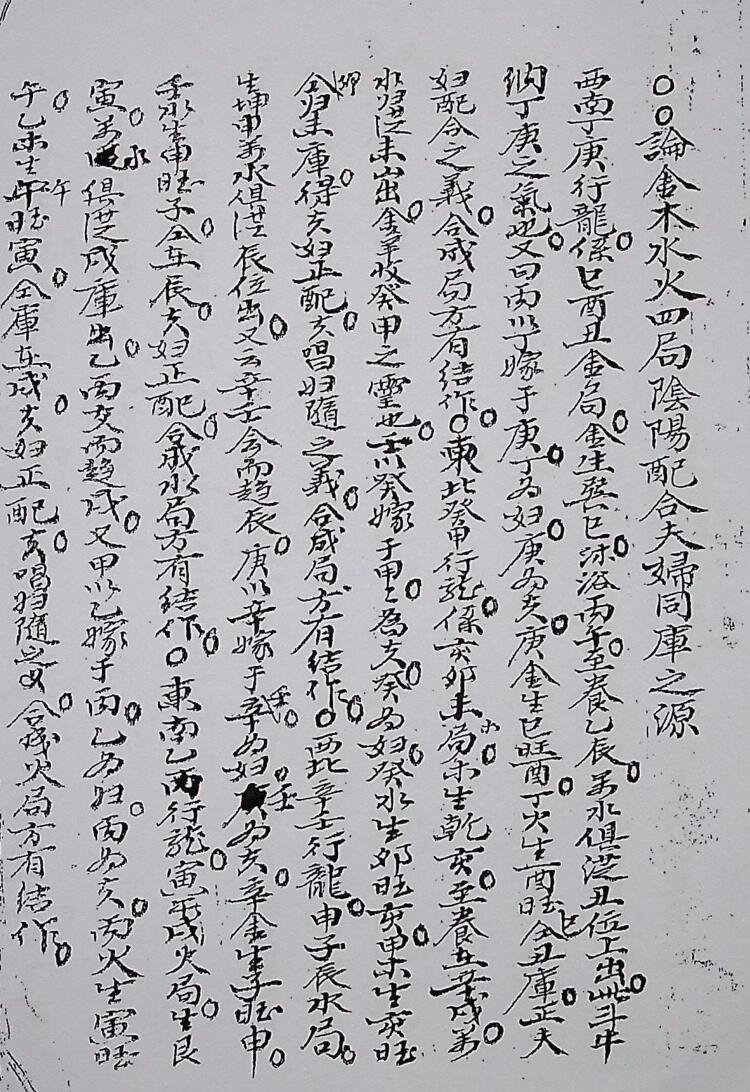 ○○論金木水火四局陰陽配合夫婦同庫之源
西南丁庚行龍。係巳酉丑金局。金生巽巳。沐浴丙午。至養乙辰。万水俱從丑位上出。此三斗牛
納丁庚之氣也。又曰丙以丁嫁于庚。丁为妇。庚为夫。庚金生巳旺酉。丁火生酉旺巳。仝丑庫。正夫
妇配合之義。合成局方有结作。○東北癸甲行龍。係亥卯未木局。木生乾亥。至養在辛戌。万
水归從未出。金羊收癸甲之靈也。壬以癸嫁于甲。甲爲夫。癸为妇。癸水生卯旺亥。甲木生亥旺
卯。仝归未庫。得夫妇正配。夫唱妇隨之義。合成局方有结作。○西北辛壬行龍。申子辰水局。
生坤申。万水俱從辰位出。又云辛壬会而趋辰。庚以辛嫁于壬。辛为妇。壬为夫。辛金生子旺申。
壬水生申旺子。仝在辰。夫妇正配。合成水局方有结作。○東南乙丙行龍。寅午戌火局。生艮
寅。万水俱從戌庫出。乙丙交而趋戌。又甲以乙嫁于丙。乙为妇。丙为夫。丙火生寅旺
午。乙木生午旺寅。仝庫在戌。夫妇正配。夫唱妇隨之义。合成火局方有结作。